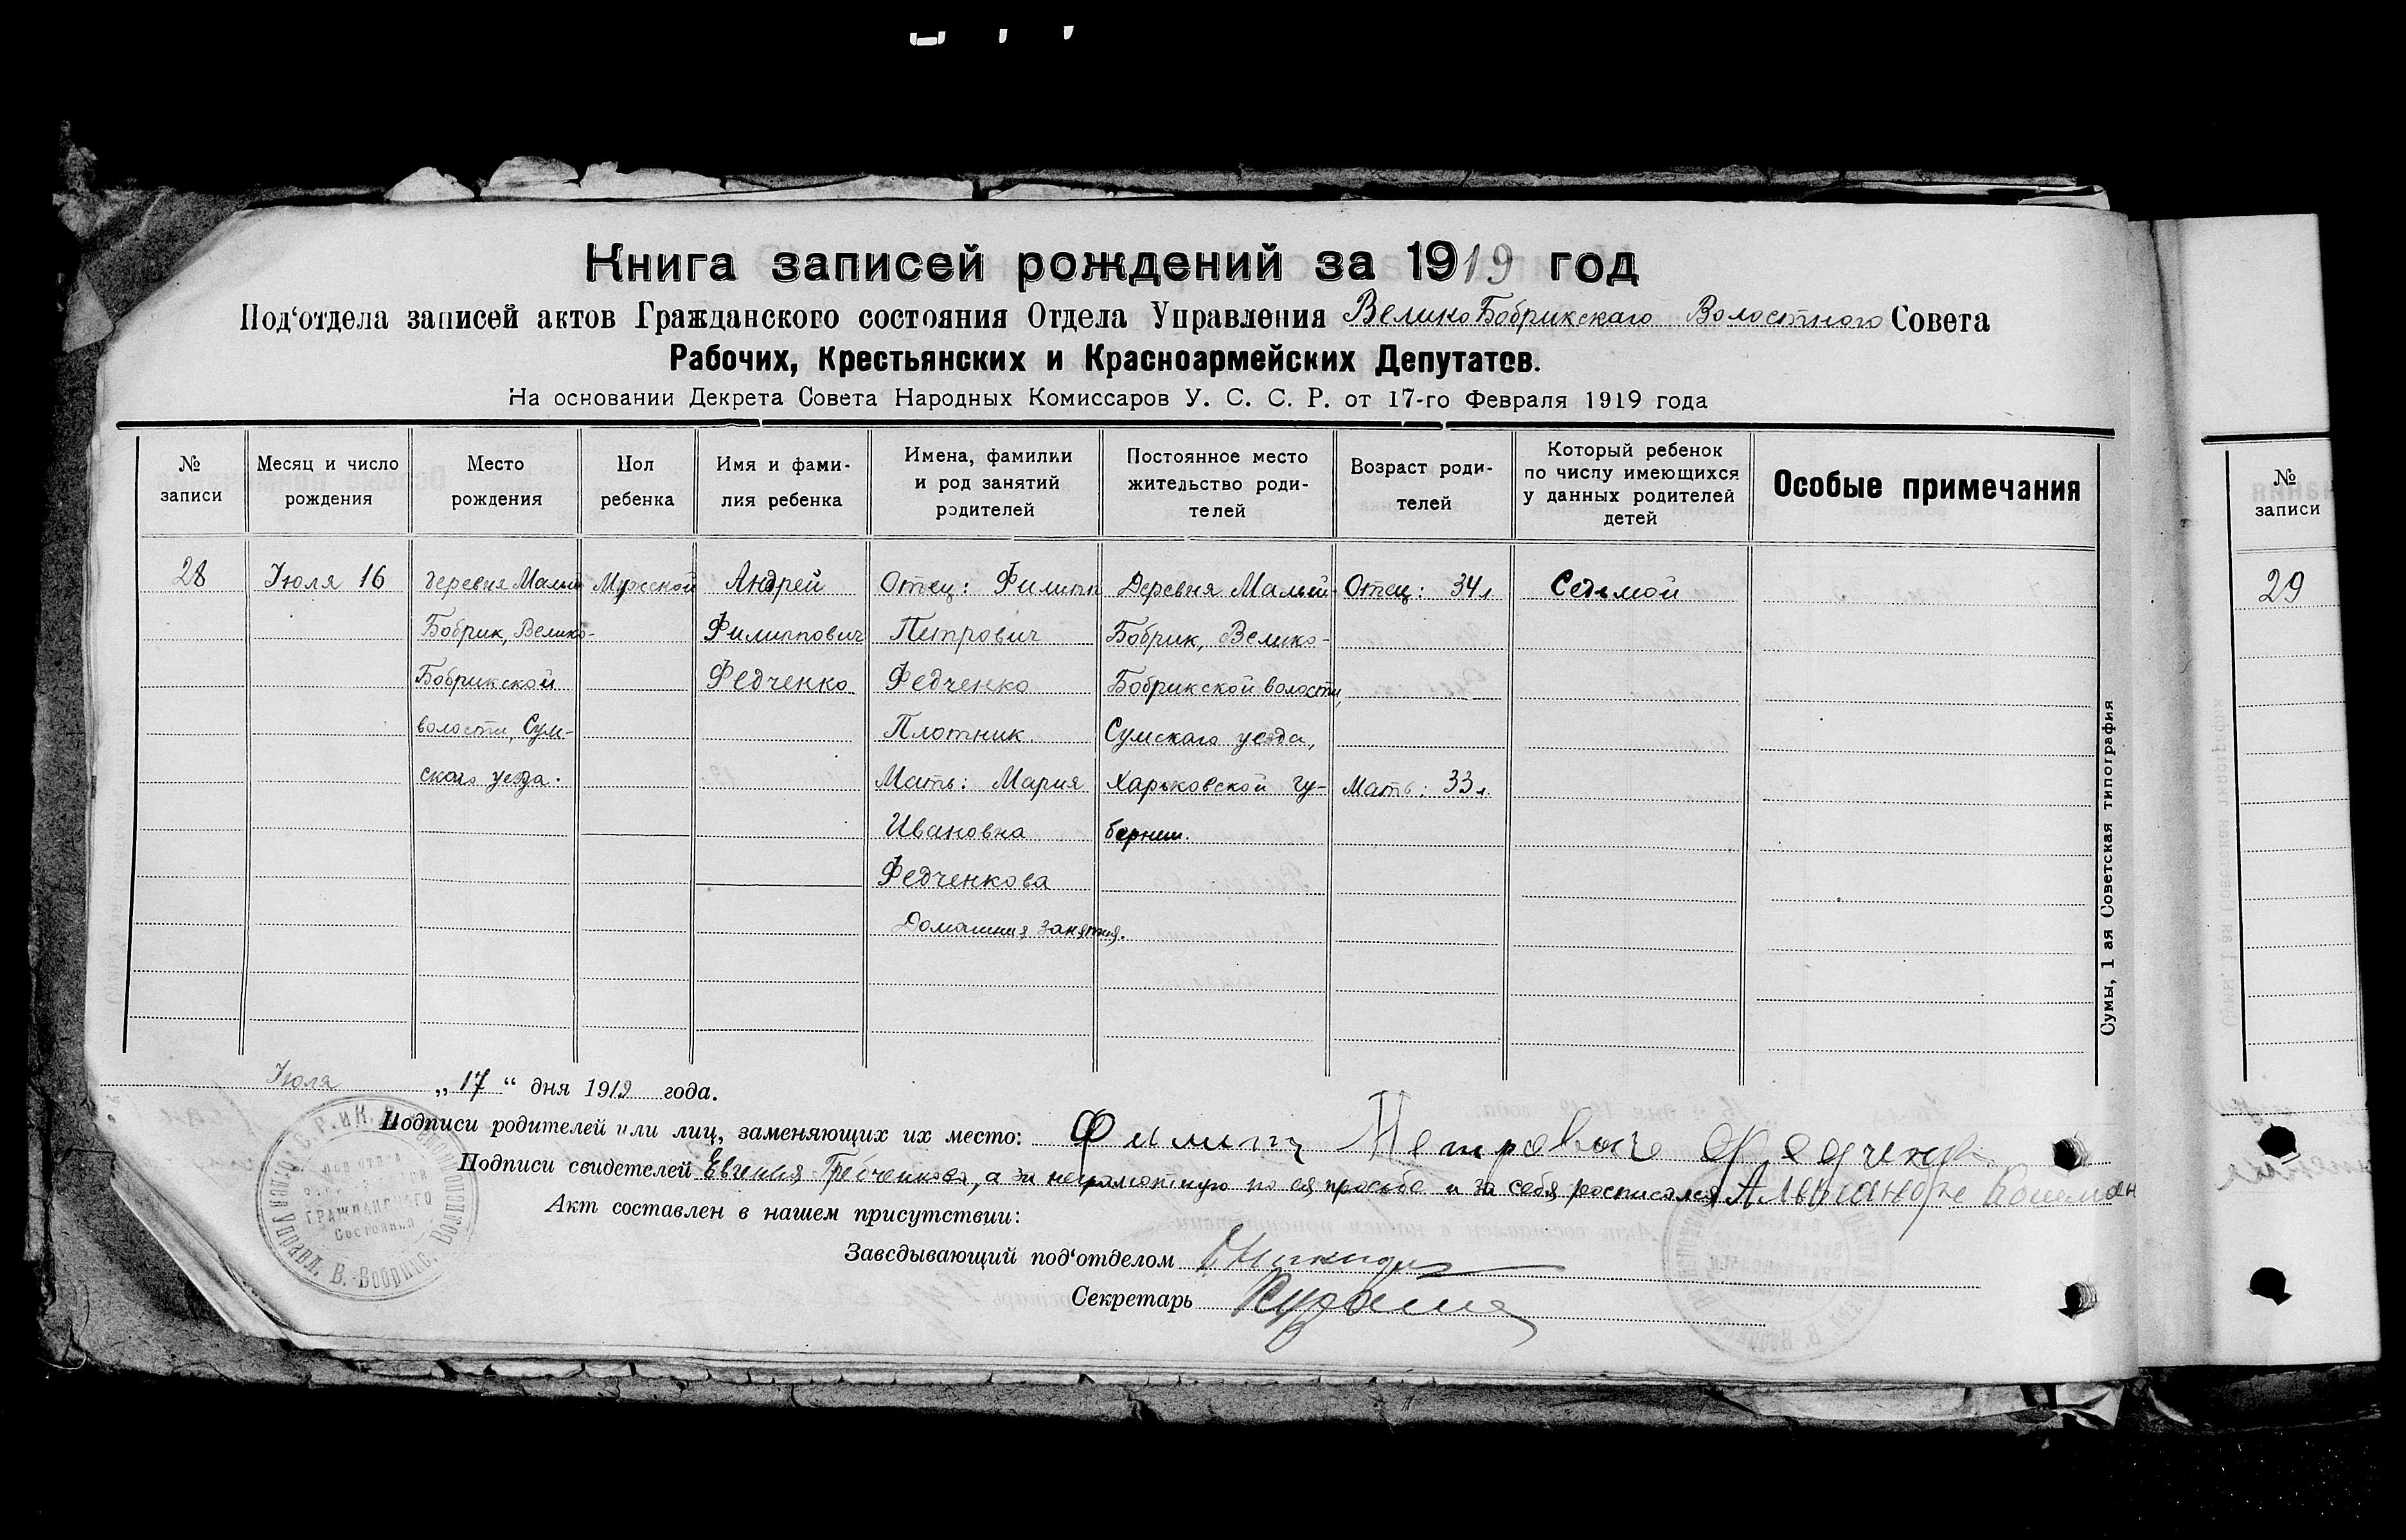 Книга записей рождений за 1919 год
Под‘отдела записей актов Гражданского состояния Отдела Управления Велико Бобрикскаго Волостного Совета
Рабочих, Крестьянских и Красноармейских Депутатов.
На основании Декрета Совета Народных Комиссаров У. С. С. Р. от 17-го Февраля 1919 года
№
записи
Месяц и число
рождения
Место
рождения
Пол
ребенка
Имя и фами-
лия ребенка
Имена, фамилки
и род занятий
родителей
Постоянное место
жительство роди-
телей
Возраст роди-
телей
Который ребенок
по числу имеющихся
у данных родителей
детей
Особые примечания
28
Июля 16
деревня Малый
Бобрик, Велико-
Бобрикской
волости, Сум-
ского уезда.
Мужской
Андрей
Филиппович
Федченко
Отец: Филипп
Петрович
Федченко
Плотник.
Мать: Мария
Ивановна
Федченкова
Домашния занятия.
Деревня Малый
Бобрик, Велико-
Бобрикской волости,
Сумскаго уезда,
Харьковской гу-
бернии.
Отец: 34 л.
Мать: 33 л.
Седьмой
Сумы, 1 ая Советская типография
№
записи
29
Июля „17“ дня 1919 года.
Подписи родителей или лиц, заменяющих их место: Филипп Петрович Федченко
Подписи свидетелей Евгения Гребченкова, а за неграмотную по ея просьбе и за себя росписался
Акт составлен в нашем присутствии:
Заведывающий под‘отделом
Секретарь
ГРАЖДАНСКОГО
Состояния